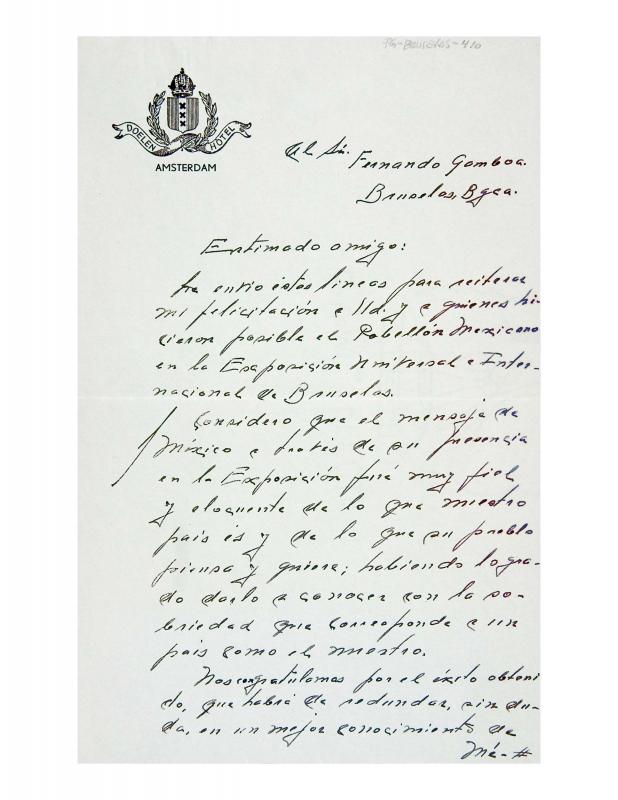 PG-Bruselas-410
DOELEN HOTEL
AMSTERDAM
Al Sr.
Fernando Gamboa.
Bruselas, Bgca.
Estimado amigo:
Le envio éstas lineas para reiterar
mi felicitación a Ud. y a quienes hi-
cieron posible el Pabellón Mexicano
en la Exposición Universal e Inter-
nacional de Bruselas.
Considero que el mensaje de
México a través de su presencia
en la Exposición fué muy fiel
y elocuente de lo que nuestro
país és y de lo que su pueblo
piensa y quiere; habiendo logra-
do darlo a conocer con la so-
briedad que corresponde a un
país como el nuestro.
Nos congratulamos por el éxito obteni-
do, que habrá de redundar, sin du-
da, en un mejor conocimiento de
Mé-#